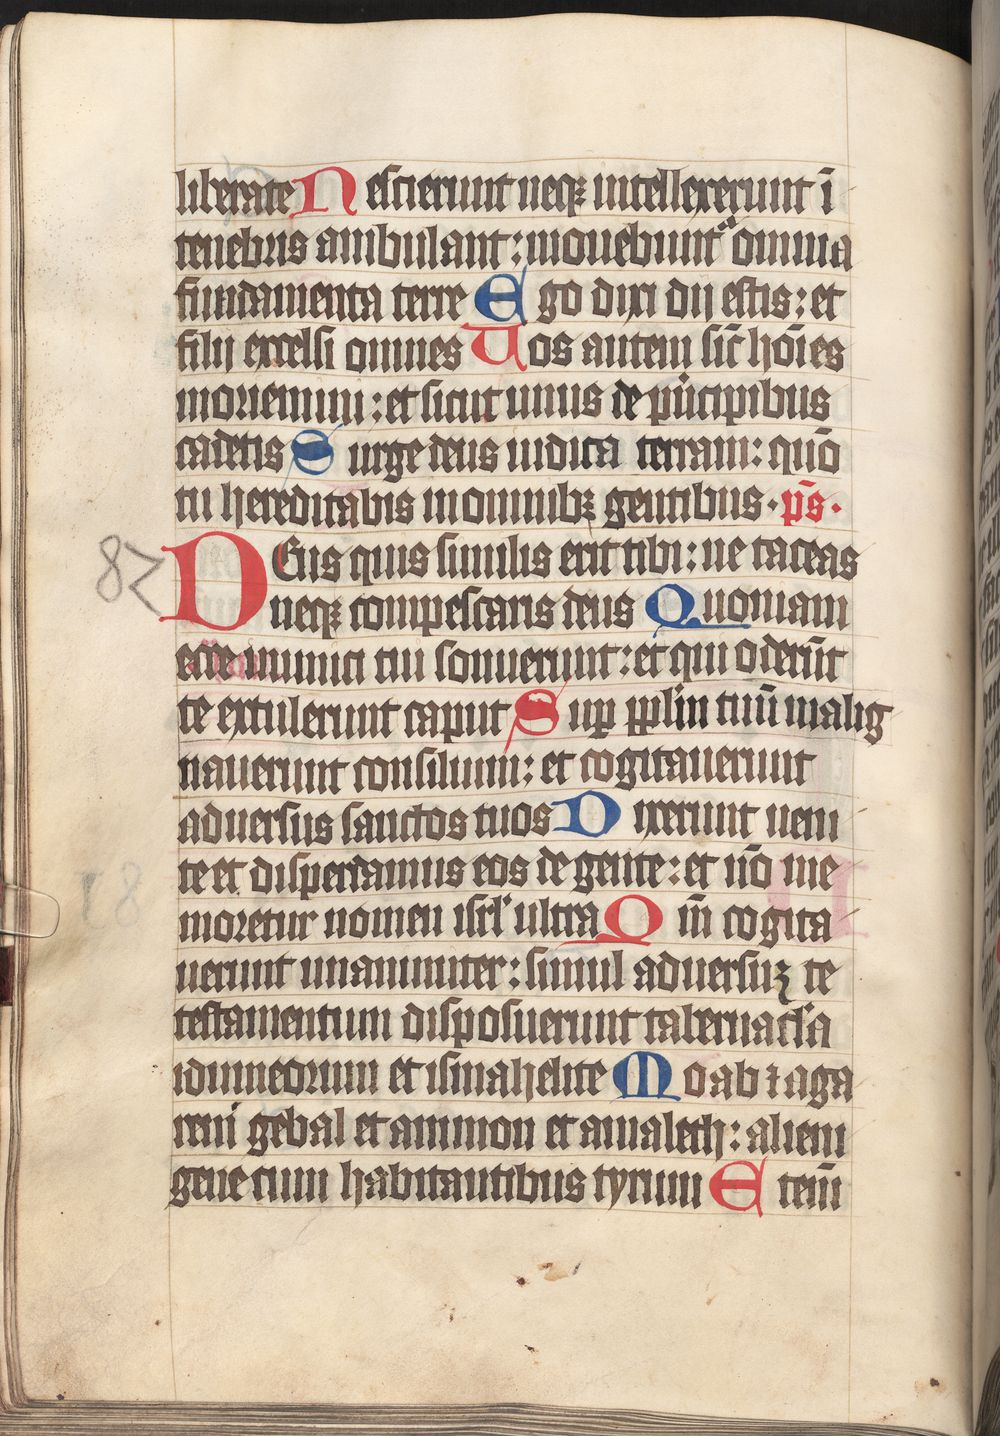 liberate Nescierunt neqꝫ intellexerunt ī
tenebris ambulant: mouebunt͛ omnia
fundamenta terre Ego dixi dij estis: et
filij excelsi omnes Uos autem sic̄ hōies
moriemini: et sicut unus de pͥncipibus
cadetis Surge deus iudica terram: qn̄o
tu hereditabis in omnibꝫ gentibus · p̄s ·
82 DEus quis similis erit tibi: ne taceas
neqꝫ compescaris deus Quoniam
ecce inimici tui sonuerunt: et qui oderūt
te extulerunt caput Suꝑ ppl̄m tuū malig
nauerunt consilium: et cogitauerunt
aduersus sanctos tuos Dixerunt ueni
te et disperdamus eos de gente: et nō me
moretur nomen isrl̓ ultra Qm̄ cogita
uerunt unanimiter: simul aduersuꝫ te
testamentum disposuerunt tabernacl̓a
idumeorum et ismahelite Moab ⁊ aga
reni gebal et ammon et amalech: alieni
gene cum habitantibus tyrum Etenī